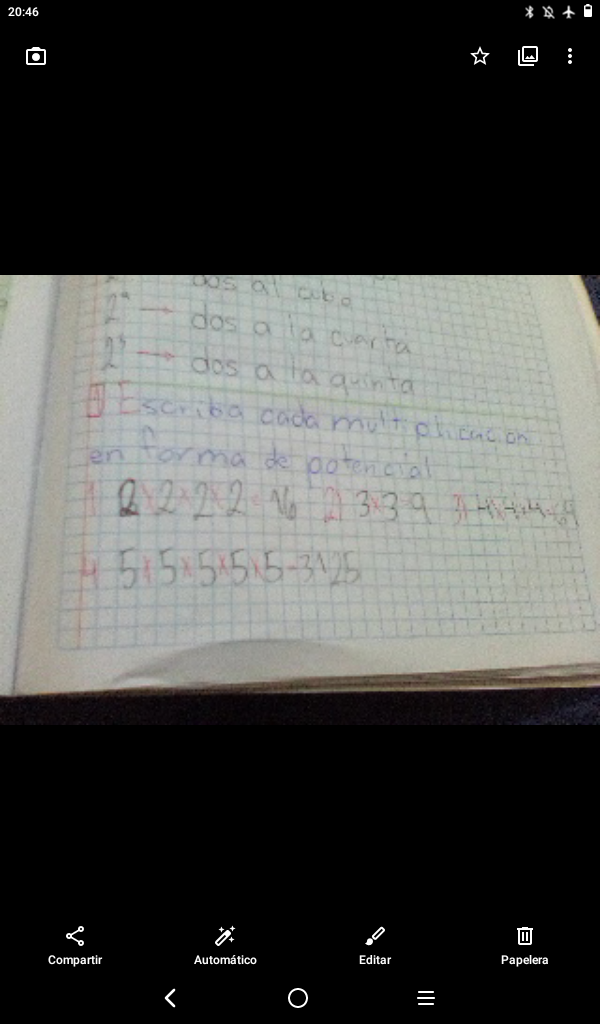 20:46
dos al cubo
2⁴ → dos a la cuarta
2⁵ → dos a la quinta
Escriba cada multiplicación
en forma de potencial
1 2x2x2x2=16 2) 3x3=9 3) 4x4x4=64
4 5x5x5x5x5=3125
Compartir Automático Editar Papelera